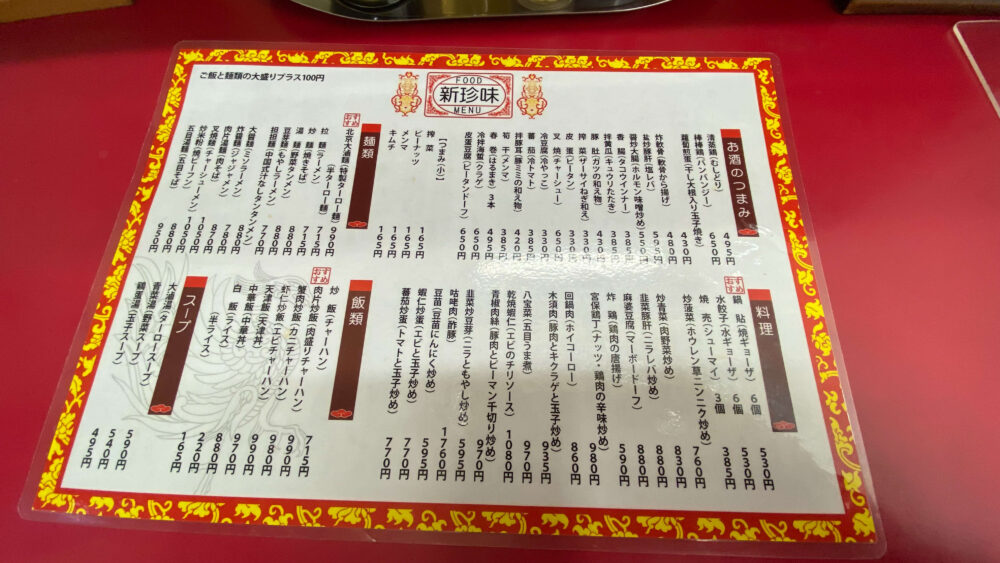 ご飯と麺類の大盛りプラス100円
FOOD
新珍味
MENU
お酒のつまみ
清蒸鶏(むしどり) 495円
棒棒鶏(バンバンジー) 650円
蘿蔔煎蛋(干し大根入り玉子焼き) 430円
炸軟骨(軟骨から揚げ) 480円
塩炒豚肝(塩レバ) 595円
醤炒大腸(ホルモン味噌炒め) 550円
香 腸(タコウインナー) 385円
拌黄瓜(キュウリたたき) 385円
豚 肚(ガツの和え物) 430円
搾 菜(ザーサイねぎ和え) 330円
皮 蛋(ピータン) 330円
叉 焼(チャーシュー) 650円
冷豆腐(冷やっこ) 330円
蕃 茄(冷トマト) 385円
拌豚耳(豚ミミの和え物) 420円
筍 干(メンマ) 385円
春 巻(はるまき) 3本 495円
冷拌海蜇(クラゲ) 650円
皮蛋豆腐(ピータンドーフ) 650円
【つまみ(小)】
搾 菜 165円
ピーナッツ 165円
メンマ 165円
キムチ 165円
麺類
おすすめ
北京大滷麺(特製ターロー麺) 990円
(半ターロー麺) 715円
拉 麺(ラーメン) 715円
炒 麺(焼きそば)
湯 麺(野菜タンメン)
豆芽麺(もやしラーメン)
担担麺(中国式汁なしタンタンメン)
大醤麺(ミソラーメン)
炸醤麺(ジャジャメン)
肉片湯麺(肉ソバ)
叉焼麺(チャーシューメン) 1050円
炒米粉(焼ビーフン) 880円
五目湯麺(五目そば) 950円
料理
おすすめ
鍋 貼(焼ギョーザ) 6個 530円
水餃子(水ギョーザ) 6個 530円
焼 売(シューマイ) 3個 385円
炒菠菜(ホウレン草ニンニク炒め) 760円
炒青菜(肉野菜炒め) 830円
韮菜豚肝(ニラレバ炒め) 880円
麻婆豆腐(マーボードーフ) 880円
炸 鶏(鶏肉の唐揚げ) 590円
宮保鶏丁(ナッツ・鶏肉の辛味炒め) 980円
回鍋肉(ホイコーロー) 860円
木須肉(豚肉とキクラゲと玉子炒め) 935円
八宝菜(五目うま煮) 970円
乾焼蝦仁(エビのチリソース) 1080円
青椒肉絲(豚肉とピーマン千切り炒め) 970円
韮菜炒豆芽(ニラともやし炒め) 595円
咕咾肉(酢豚) 1760円
豆苗(豆苗にんにく炒め)
蝦仁炒蛋(エビと玉子炒め) 770円
蕃茄炒蛋(トマトと玉子炒め) 770円
飯類
炒 飯(チャーハン) 715円
おすすめ
肉片炒飯(肉盛りチャーハン) 990円
蟹肉炒飯(カニチャーハン) 990円
蝦仁炒飯(エビチャーハン) 980円
天津飯(天津丼) 970円
中華飯(中華丼) 880円
白 飯(ライス) 220円
(半ライス) 165円
スープ
大滷湯(ターロースープ) 590円
青菜湯(野菜スープ) 540円
鶏蛋湯(玉子スープ) 495円